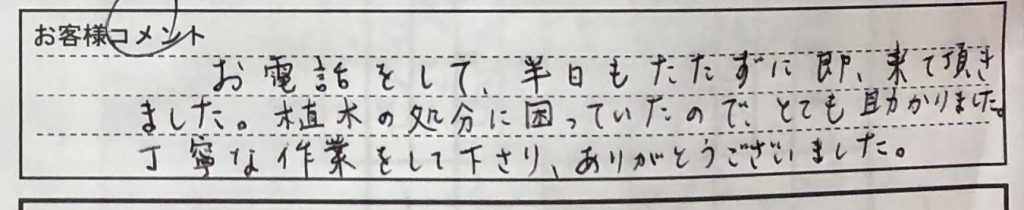 お客様コメント
お電話をして、半日もたたずに即、来て頂き
ました。植木の処分に困っていたので、とても助かりました。
丁寧な作業をして下さり、ありがとうございました。